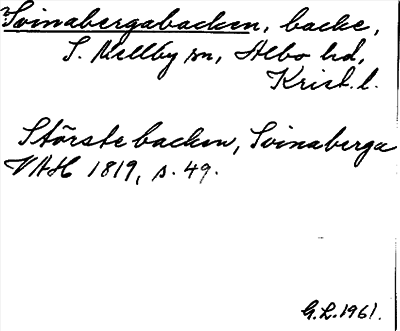 Svinabergabacken, backe,
S. Mellby sn, Albo hd,
Krist. l.
Störste backen, Svinaberga
VAH 1819, s. 49.
G.L. 1961.